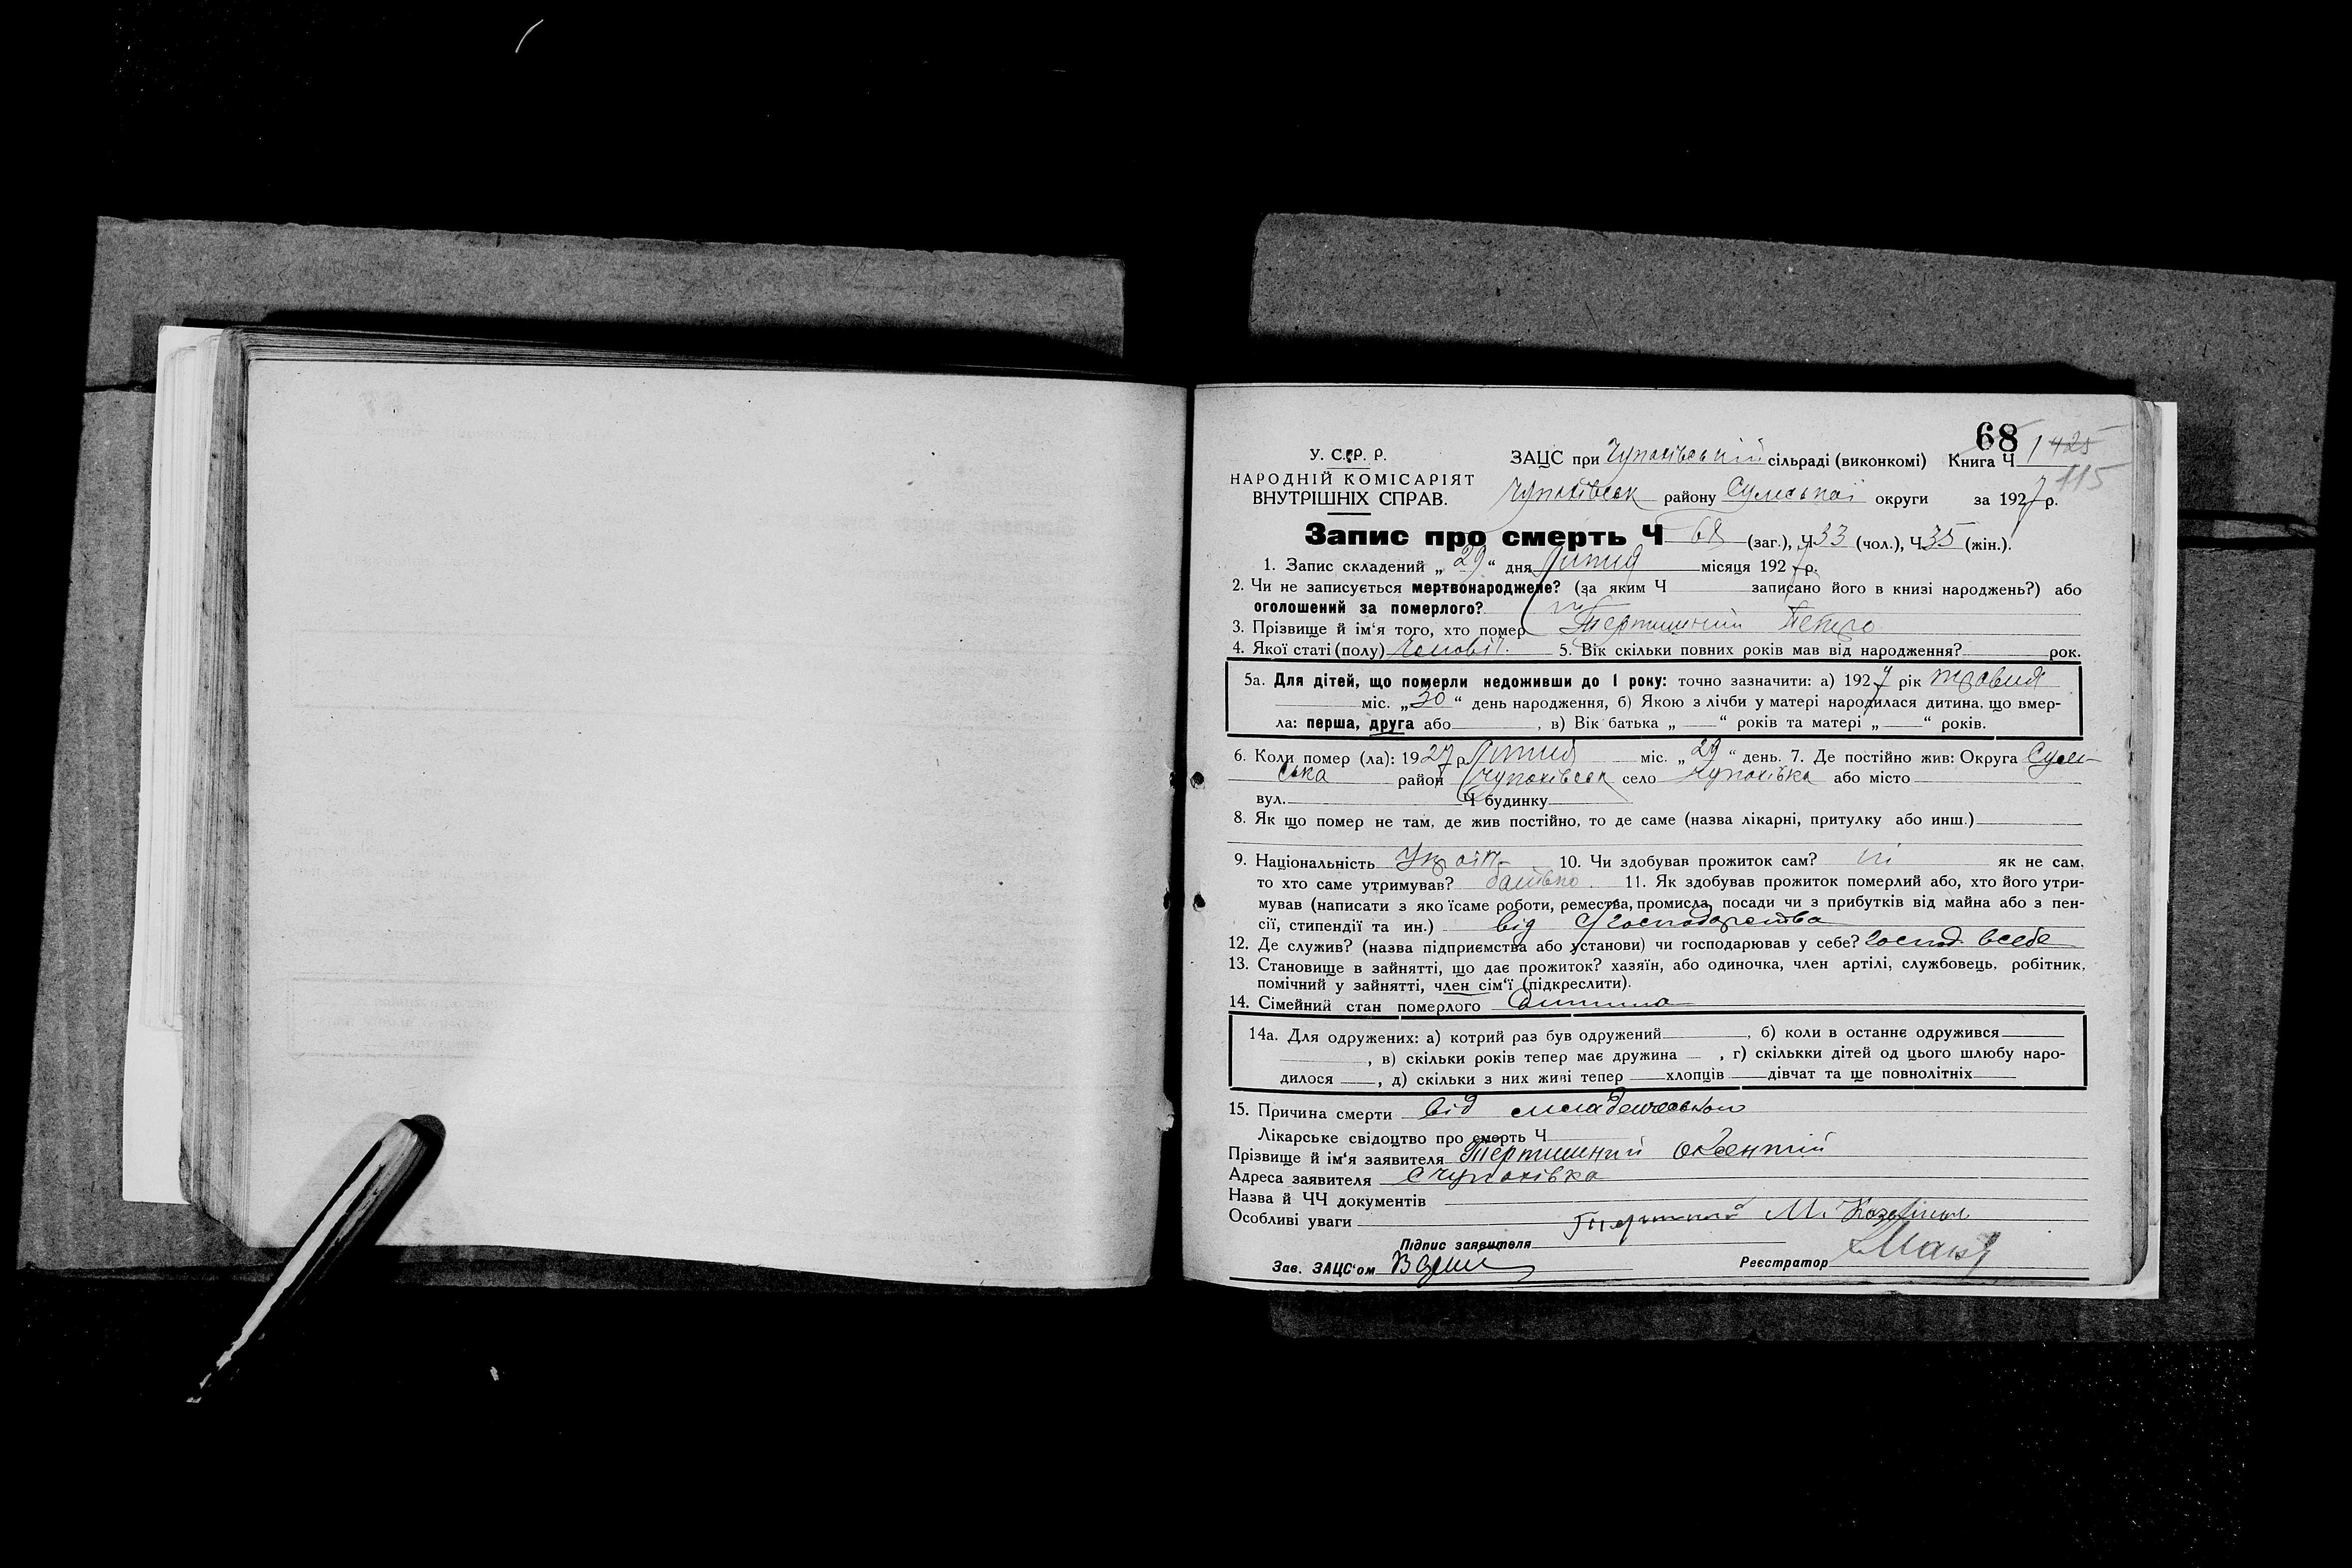 68
У. С. Р. Р. ЗАЦС при Чупахівській сільраді (виконкомі) Книга Ч 1 425
НАРОДНІЙ КОМІСАРІЯТ 115
ВНУТРІШНІХ СПРАВ. Чупахівськ району Сумської округи за 1927 р.
Запис про смерть Ч 68 (заг.), Ч 33 (чол.), Ч 35 (жін.).
1. Запис складений „ 29 “ дня липня місяця 1927 р.
2. Чи не записується мертвонароджене? (за яким Ч записано його в книзі народжень?) або
оголошений за померлого? ні
3. Прізвище й ім'я того, хто помер Тертишний Петро
4. Якої статі (полу) чоловіч. 5. Вік скільки повних років мав від народження? рок.
5а. Для дітей, що померли недоживши до 1 року: точно зазначити: а) 1927 рік травня
міс. „ 30 “ день народження, б) Якою з лічби у матері народилася дитина, що вмер-
ла: перша, друга або , в) Вік батька „ “ років та матері „ “ років.
6. Коли помер (ла): 1927 р. липня міс. „ 29 “ день. 7. Де постійно жив: Округа Сум-
ська район Чупахівськ село Чупахівка або місто
вул. Ч будинку
8. Як що помер не там, де жив постійно, то де саме (назва лікарні, притулку або инш.)
9. Національність Україн- 10. Чи здобував прожиток сам? ні як не сам,
то хто саме утримував? батько. 11. Як здобував прожиток померлий або, хто його утри-
мував (написати з яко їсаме роботи, ремества, промисла, посади чи з прибутків від майна або з пен-
сії, стипендії та ин.) від С/господарства
12. Де служив? (назва підприємства або установи) чи господарював у себе? господ. в себе
13. Становище в зайнятті, що дає прожиток? хазяїн, або одиночка, член артілі, службовець, робітник,
помічний у зайнятті, член сім'ї (підкреслити).
14. Сімейний стан померлого дитина
14а. Для одружених: а) котрий раз був одружений , б) коли в останнє одружився
, в) скільки років тепер має дружина , г) скількки дітей од цього шлюбу наро-
дилося , д) скільки з них живі тепер хлопців дівчат та ще повнолітніх
15. Причина смерти від
Лікарське свідоцтво про смерть Ч
Прізвище й ім'я заявителя Тертишний
Адреса заявителя с Чупахівка
Назва й ЧЧ документів
Особливі уваги
Підпис заявителя
Зав. ЗАЦС'ом Реєстратор